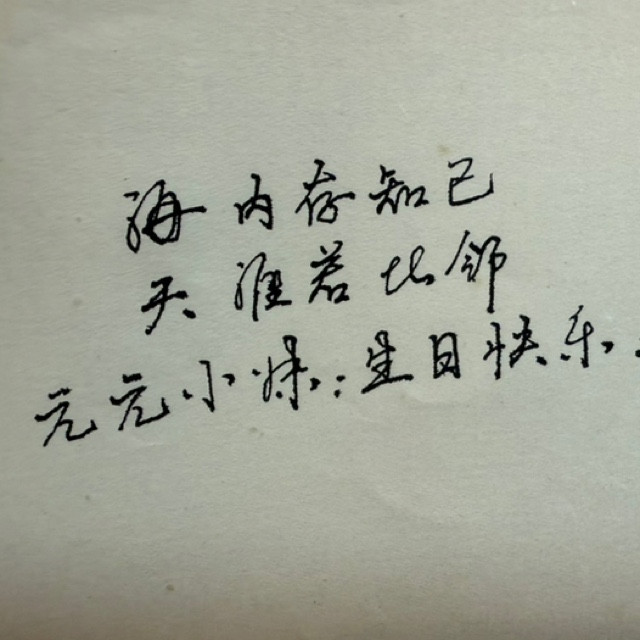 海内存知己
天涯若比邻
元元小妹：生日快乐.